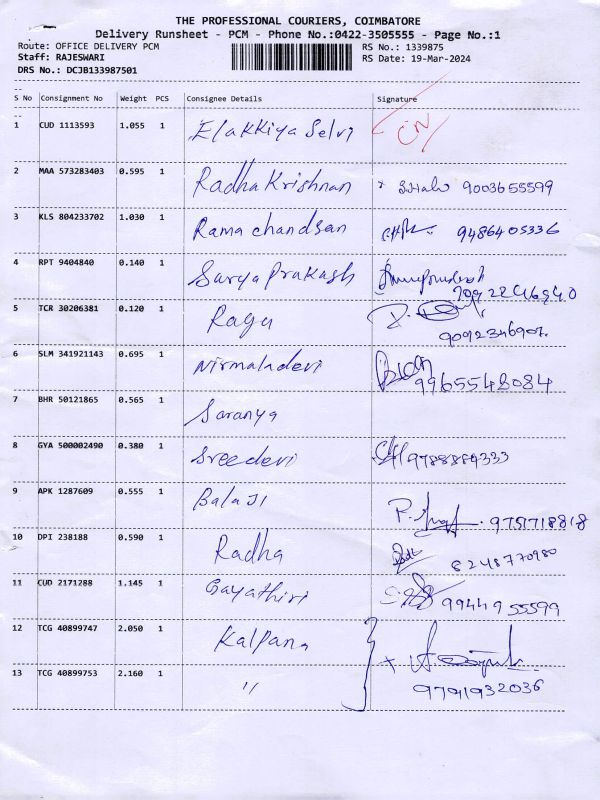 THE PROFESSIONAL COURIERS, COIMBATORE
Delivery Runsheet - PCM - Phone No.:0422-3505555 - Page No.:1
Route: OFFICE DELIVERY PCM RS No.: 1339875
Staff: RAJESWARI RS Date: 19-Mar-2024
DRS No.: DCJB133987501
S No Consignment No Weight PCS Consignee Details Signature
1 CUD 1113593 1.055 1 Elakkiya Selvi
2 MAA 573283403 0.595 1 Radha Krishnan 9003655599
3 KLS 804233702 1.030 1 Rama chandsan 9486405336
4 RPT 9404840 0.140 1 Surya Prakash
5 TCR 30206381 0.120 1 Ragu
6 SLM 341921143 0.695 1 Nirmaladevi 9965548084
7 BHR 50121865 0.565 1 Saranya
8 GYA 500002490 0.380 1 Sreedevi 9788884333
9 APK 1287609 0.555 1 BalaJI 9751718818
10 DPI 238188 0.590 1 Radha 8248770980
11 CUD 2171288 1.145 1 Gayathiri 9944955599
12 TCG 40899747 2.050 1 Kalpana
13 TCG 40899753 2.160 1 " 9791932036